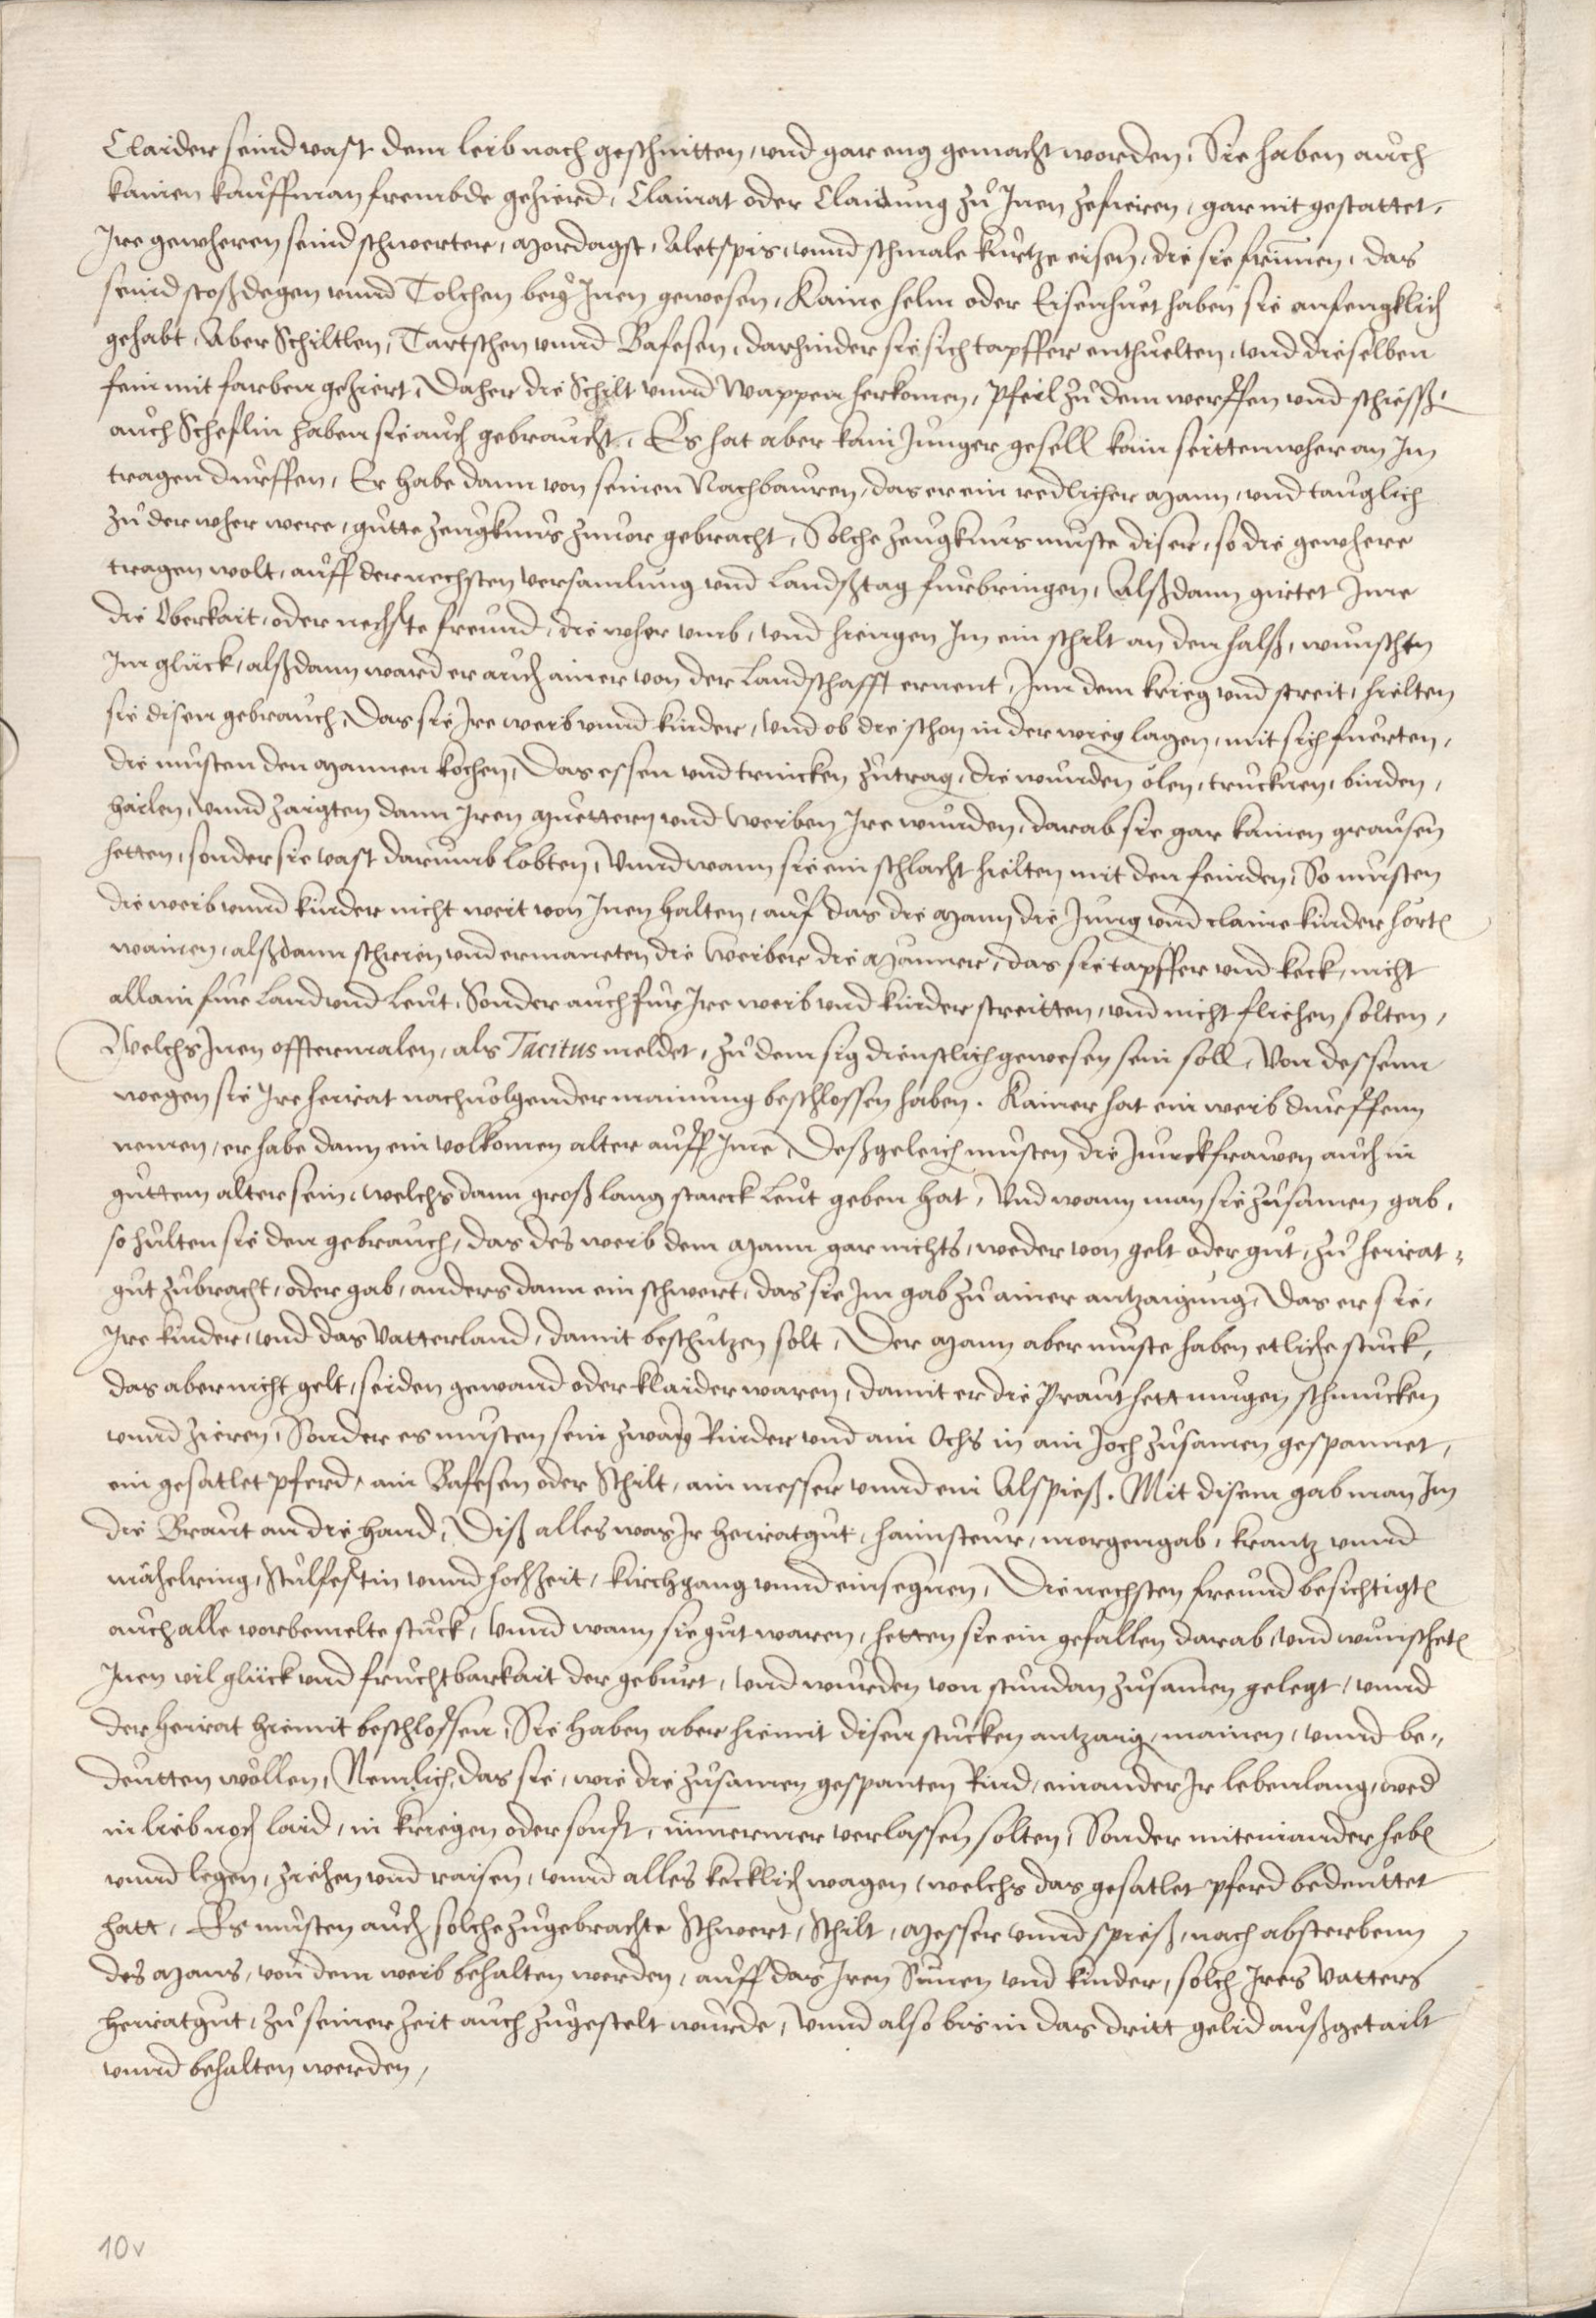 Claider seind vast dem leib nach geschnitten, vnd gar eng gemacht worden, Sie haben auch
kainen kauffman frembde gezierd, Clainat oder Claidung zů Inen zefieren, gar nit gestattet,
Ire gewheren seind schwerter, mordagst, Aletspis, vnnd schmale kurtze eisen, die sie frimen, das
seind stoßdegen vnnd Tolchen beÿ Inen gewesen, Kaine helm oder Eisenhuet haben sie anfengklich
gehabt, Aber Schiltlen, Tartschen vnnd Bafesen, darhinder sie sich tapffer enthuelten, vnd dieselben
fein mit farben geziert, Daher die Schilt vnnd Wappen herkomen, Pfeil zů dem werffen vnd schiessen,
auch Scheflin haben sie auch gebraucht, Es hat aber kain Junger gesell kain seittenwher an Im
tragen durffen, Er habe dann von seinen Nachbauren, das er ein redlicher Mann, vnd tauglich
zů der wher were, gůtte zeugknus zuuor gebracht, Solche zeugknus muste diser, so die gewhere
tragen wolt, auff der nechsten versamlung vnd Landßtag furbringen, Alßdann gürtet Ime
die Oberkait, oder nechste freund, die wher vmb, vnd hiengen Im ein schilt an den halß, wunschten
Im glück, alßdann ward er auch ainer von der Landschafft ernent, Inn dem krieg vnd streit, hielten
sie disen gebrauch, Das sie Ire weib vnnd kinder, vnd ob die schon in der wieg lagen, mit sich fuerten,
die musten den Mannen kochen, Das essen vnd trincken zůtrag, die wunden ölen, trucknen, binden,
hailen, Vnnd zaigten dann Iren Muettern vnd Weiben Ire wunden, darab sie gar kainen grausen
hetten, sonder sie vast darumb lobten, Vnnd wann sie ein schlacht hielten mit den feinden, So musten
die weib vnnd kinder nicht weit von Inen halten, auf das die Mann die Jung vnd claine kinder hörten
wainen, alßdann schrien vnd ermaneten die Weiber die Männer, das sie tapffer vnd keck, nicht
allain fur Land vnd Leut, Sonder auch fur Ire weib vnd kinder streitten, vnd nicht fliehen solten,
Welchs Inen offtermalen, als Tacitus meldet, zů dem sig dienstlich gewesen sein soll, Von dessenn
wegen sie Ire heirat nachuolgender mainung beschlossen haben. Kainer hat ein weib durffenn
nemen, er habe dann ein volkomen alter auff Ime, Deßgeleich musten die Junckfrawen auch in
gůttem alter sein, welchs dann groß lang starck Leut geben hat, Vnd wann man sie zůsamen gab,
so hůlten sie den gebrauch, das des weib dem Mann gar nichts, weder von gelt oder gůt, zů heirat-
gůt zůbracht, oder gab, anders dann ein schwert, das sie Im gab zů ainer antzaigung, Das er sie,
Ire kinder, vnd das Vatterland, damit beschutzen solt, Der Mann aber muste haben etliche stuck,
das aber nicht gelt, seiden gewand oder klaider waren, damit er die Praut hett mugen schmucken
vnnd zieren, Sonder es musten sein zwaÿ Rinder vnd ain Ochs in ain Joch zůsamen gespannet,
ein gesatlet pferd, ain Bafesen oder Schilt, ain messer vnnd ein Alspieß. Mit disem gab man Im
die Braut an die hand, Diß alles was Ir heiratgůt, haimsteur, morgengab, krantz vnnd
mähelring, Stulfestin vnnd hochzeit, kirchgang vnnd einsegnen, Die nechsten freund besichtigten
auch alle vorbemelte stuck, Vnnd wann sie gůt waren, hetten sie ein gefallen darab, vnd wunscheten
Inen vil glück vnd fruchtbarkait der geburt, vnd wurden von stundan zůsamen gelegt, vnnd
der heirat hiemit beschlossen, Sie haben aber hiemit disen stucken antzaig, mainen, vnnd be-
deutten wöllen, Nemlich, das sie, wie die zůsamen gespanten Rind, einander Ir lebenlang, wed
in lieb noch laid, in kriegen oder sonst, nimermer verlassen solten, Sonder miteinander heben
vnnd legen, ziehen vnd raisen, vnnd alles kecklich wagen, welchs das gesatlet pferd bedeuttet
hatt, Es musten auch solche zůgebrachte Schwert, Schilt, Messer vnnd spieß, nach absterbenn
des Mans, von dem weib behalten werden, auff das Iren Sünen vnd kinder, solch Ires Vatters
heiratgůt, zů seiner zeit auch zůgestelt wurde, Vnnd also bis in das dritt gelid außgetailt
vnnd behalten werden,
10v